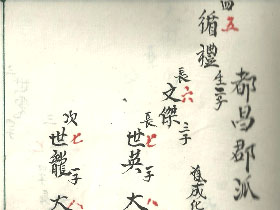 都昌郡派
四五
循禮 生二子
長六
文傑 三子
長七
世英 一子
次七
世龍 一子
大八
大八